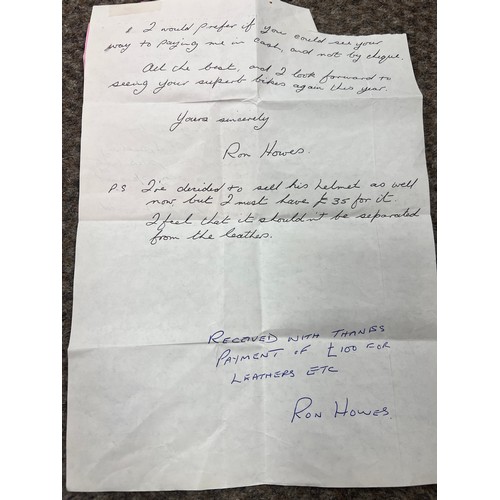 I would prefer if you could see your
way to paying me in cash, and not by cheque.
All the best, and I look forward to
seeing your superb bikes again this year
Yours sincerely
Ron Howes.
P.S I've decided to sell his helmet as well
now but I must have £35 for it.
I feel that it shouldn't be separated
from the leathers.
RECEIVED WITH THANKS
PAYMENT OF £100 FOR
LEATHERS ETC
RON HOWES.